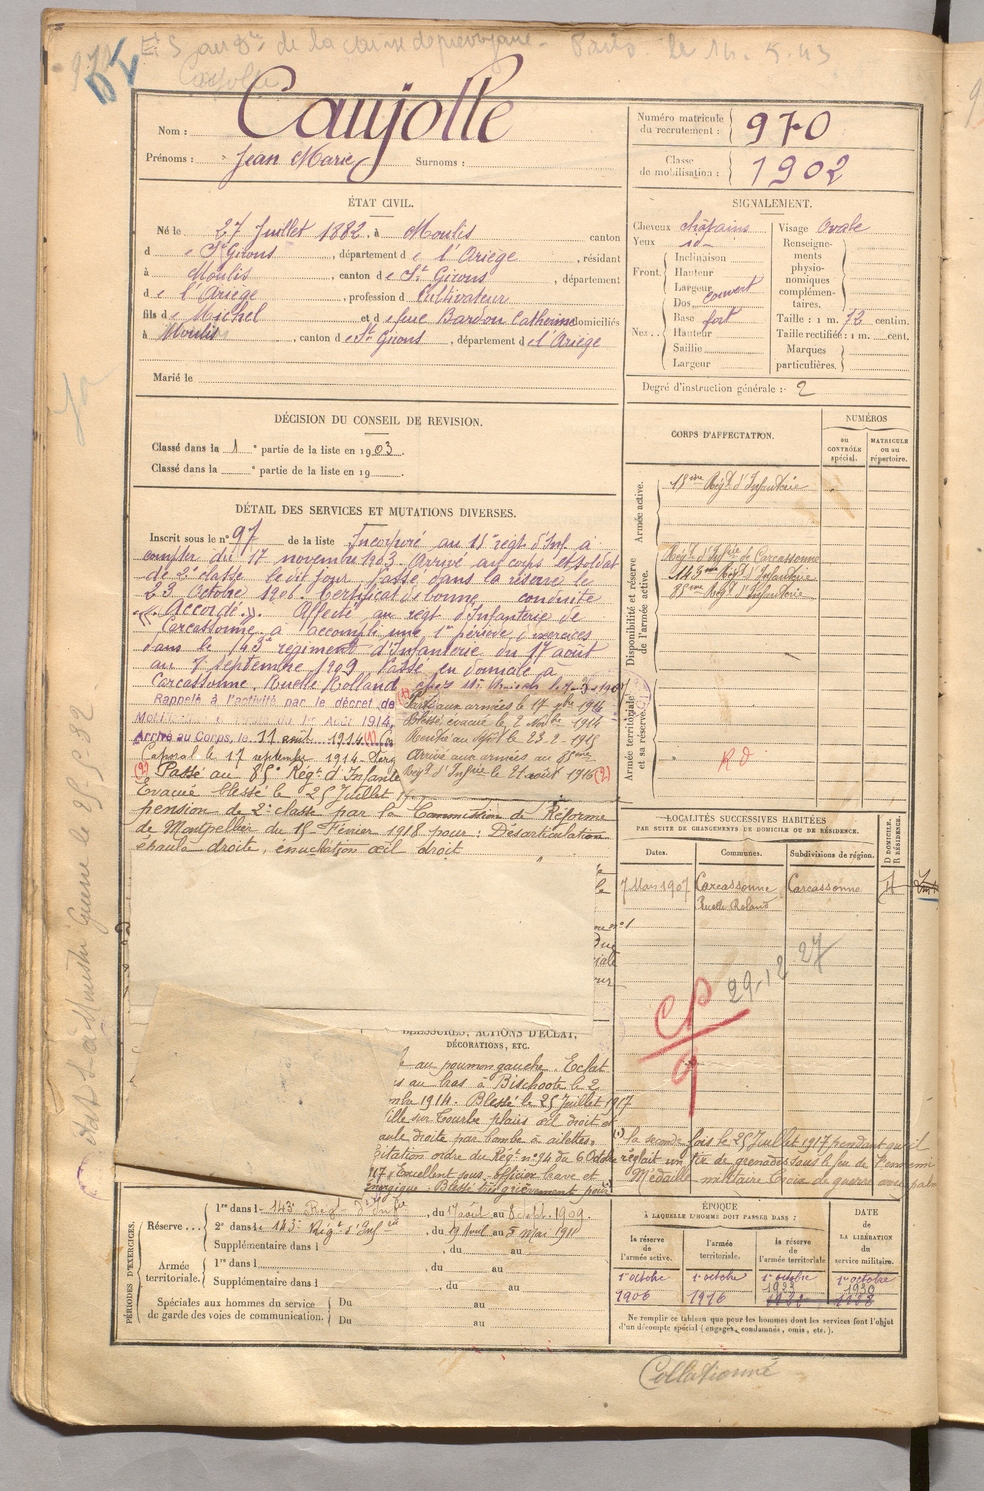 de la caisse de prévoyance - Paris le 14.5.43
Nom : Caujolle
Prénoms : Jean Marie Surnoms :
Numéro matricule du recrutement : 970
Classe de mobilisation : 1902
ÉTAT CIVIL.
Né le 27 Juillet 1882, à Moulis canton
d e St Girons, département d e l'Ariège, résidant
à Moulis, canton d e St Girons, département
d e l'Ariège, profession d Cultivateur
fils d e Michel et d e feue Bardou Catherine domiciliés
à Moulis, canton d e St Girons, département d e l'Ariège
Marié le
SIGNALEMENT.
Cheveux châtains
Yeux id-
Front. Inclinaison
Hauteur
Largeur
Nez... Dos couvert
Base fort
Hauteur
Saillie
Largeur
Visage Ovale
Renseignements physionomiques complémentaires.
Taille : 1 m. 72 centim.
Taille rectifiée : 1 m. cent.
Marques particulières.
Degré d'instruction générale : 2
DÉCISION DU CONSEIL DE REVISION.
Classé dans la 1e partie de la liste en 1903.
Classé dans la e partie de la liste en 19
CORPS D'AFFECTATION.
NUMÉROS
au CONTRÔLE spécial.
MATRICULE ou au répertoire.
Armée active.
15eme Régt d'Infanterie
Disponibilité et réserve de l'armée active.
Régt d'Infrie de Carcassonne
143eme Régt d'Infanterie
85eme Régt d'Infanterie
Armée territoriale et sa réserve.
R.D
DÉTAIL DES SERVICES ET MUTATIONS DIVERSES.
Inscrit sous le n° 97 de la liste Incorporé au 15e régt d'Inf à
compter du 17 novembre 1903 Arrivé au corps et soldat
de 2e classe le dit jour, Passé dans la réserve le
23 Octobre 1906 Certificat de bonne conduite
"Accordé". Affecté au régt d'Infanterie de
Carcassonne, a accompli une 1re période d'exercices
dans le 143e régiment d'Infanterie du 17 août
au 7 septembre 1909 Passé en domicile à
Carcassonne, Ruelle Rolland
Rappelé à l'activité par le décret de
Mobilisation du 1er Août 1914,
Arrivé au Corps, le 11 août 1914 (1)
Caporal le 17 septembre 1914 - Serg
Parti aux armées le 17 7bre 1914
Blessé évacué le 2 Novbre 1914
Arrivé aux armées au 85eme
Régt d'Infrie le 21 août 1916 (2)
(2) Passé au 85e Régt d'Infanterie
Evacué blessé le 25 Juillet
pension de 2e classe par la Commission de Réforme
de Montpellier du 15 Février 1918 pour : Désarticulation
épaule droite, énucléation œil droit
LOCALITÉS SUCCESSIVES HABITÉES
PAR SUITE DE CHANGEMENTS DE DOMICILE OU DE RÉSIDENCE.
Dates. Communes. Subdivisions de région. D DOMICILE. R RÉSIDENCE.
7 Mars 1907 Carcassonne Carcassonne
Ruelle Roland
29.12 27
CP
9
BLESSURES, ACTIONS D'ÉCLAT,
DÉCORATIONS, ETC.
au poumon gauche. Eclat
au bras à Bischoote le 2
mbre 1914. Blessé le 25 Juillet 1917
ille sur Tourbe plaies œil droit et
aule droite par bombe à ailettes.
Citation ordre du Régt n° 94 du 6 Octobre
917. Excellent sous-officier brave et
énergique. Blessé très grièvement pour
la seconde fois le 25 Juillet 1917 pendant qu'il
réglait un tir de grenades sous le feu de l'ennemi
Médaille militaire Croix de guerre avec palme
PÉRIODES D'EXERCICES.
Réserve... 1re dans l 143e Régt d'Infie, du 17 août au 8 Sept. 1909.
2e dans l e 143e Régt d'Infrie, du 19 Avril au 5 Mai 1911
Supplémentaire dans l , du au
Armée territoriale. 1re dans l , du au
Supplémentaire dans l , du au
Spéciales aux hommes du service de garde des voies de communication. Du au
Du au
ÉPOQUE
À LAQUELLE L'HOMME DOIT PASSER DANS :
la réserve de l'armée active. l'armée territoriale. la réserve de l'armée territoriale
DATE de LA LIBÉRATION du service militaire.
1er octobre 1906 1er octobre 1916 1er octobre 1er octobre
Ne remplir ce tableau que pour les hommes dont les services font l'objet
d'un décompte spécial (engagés, condamnés, omis, etc.).
Collationné